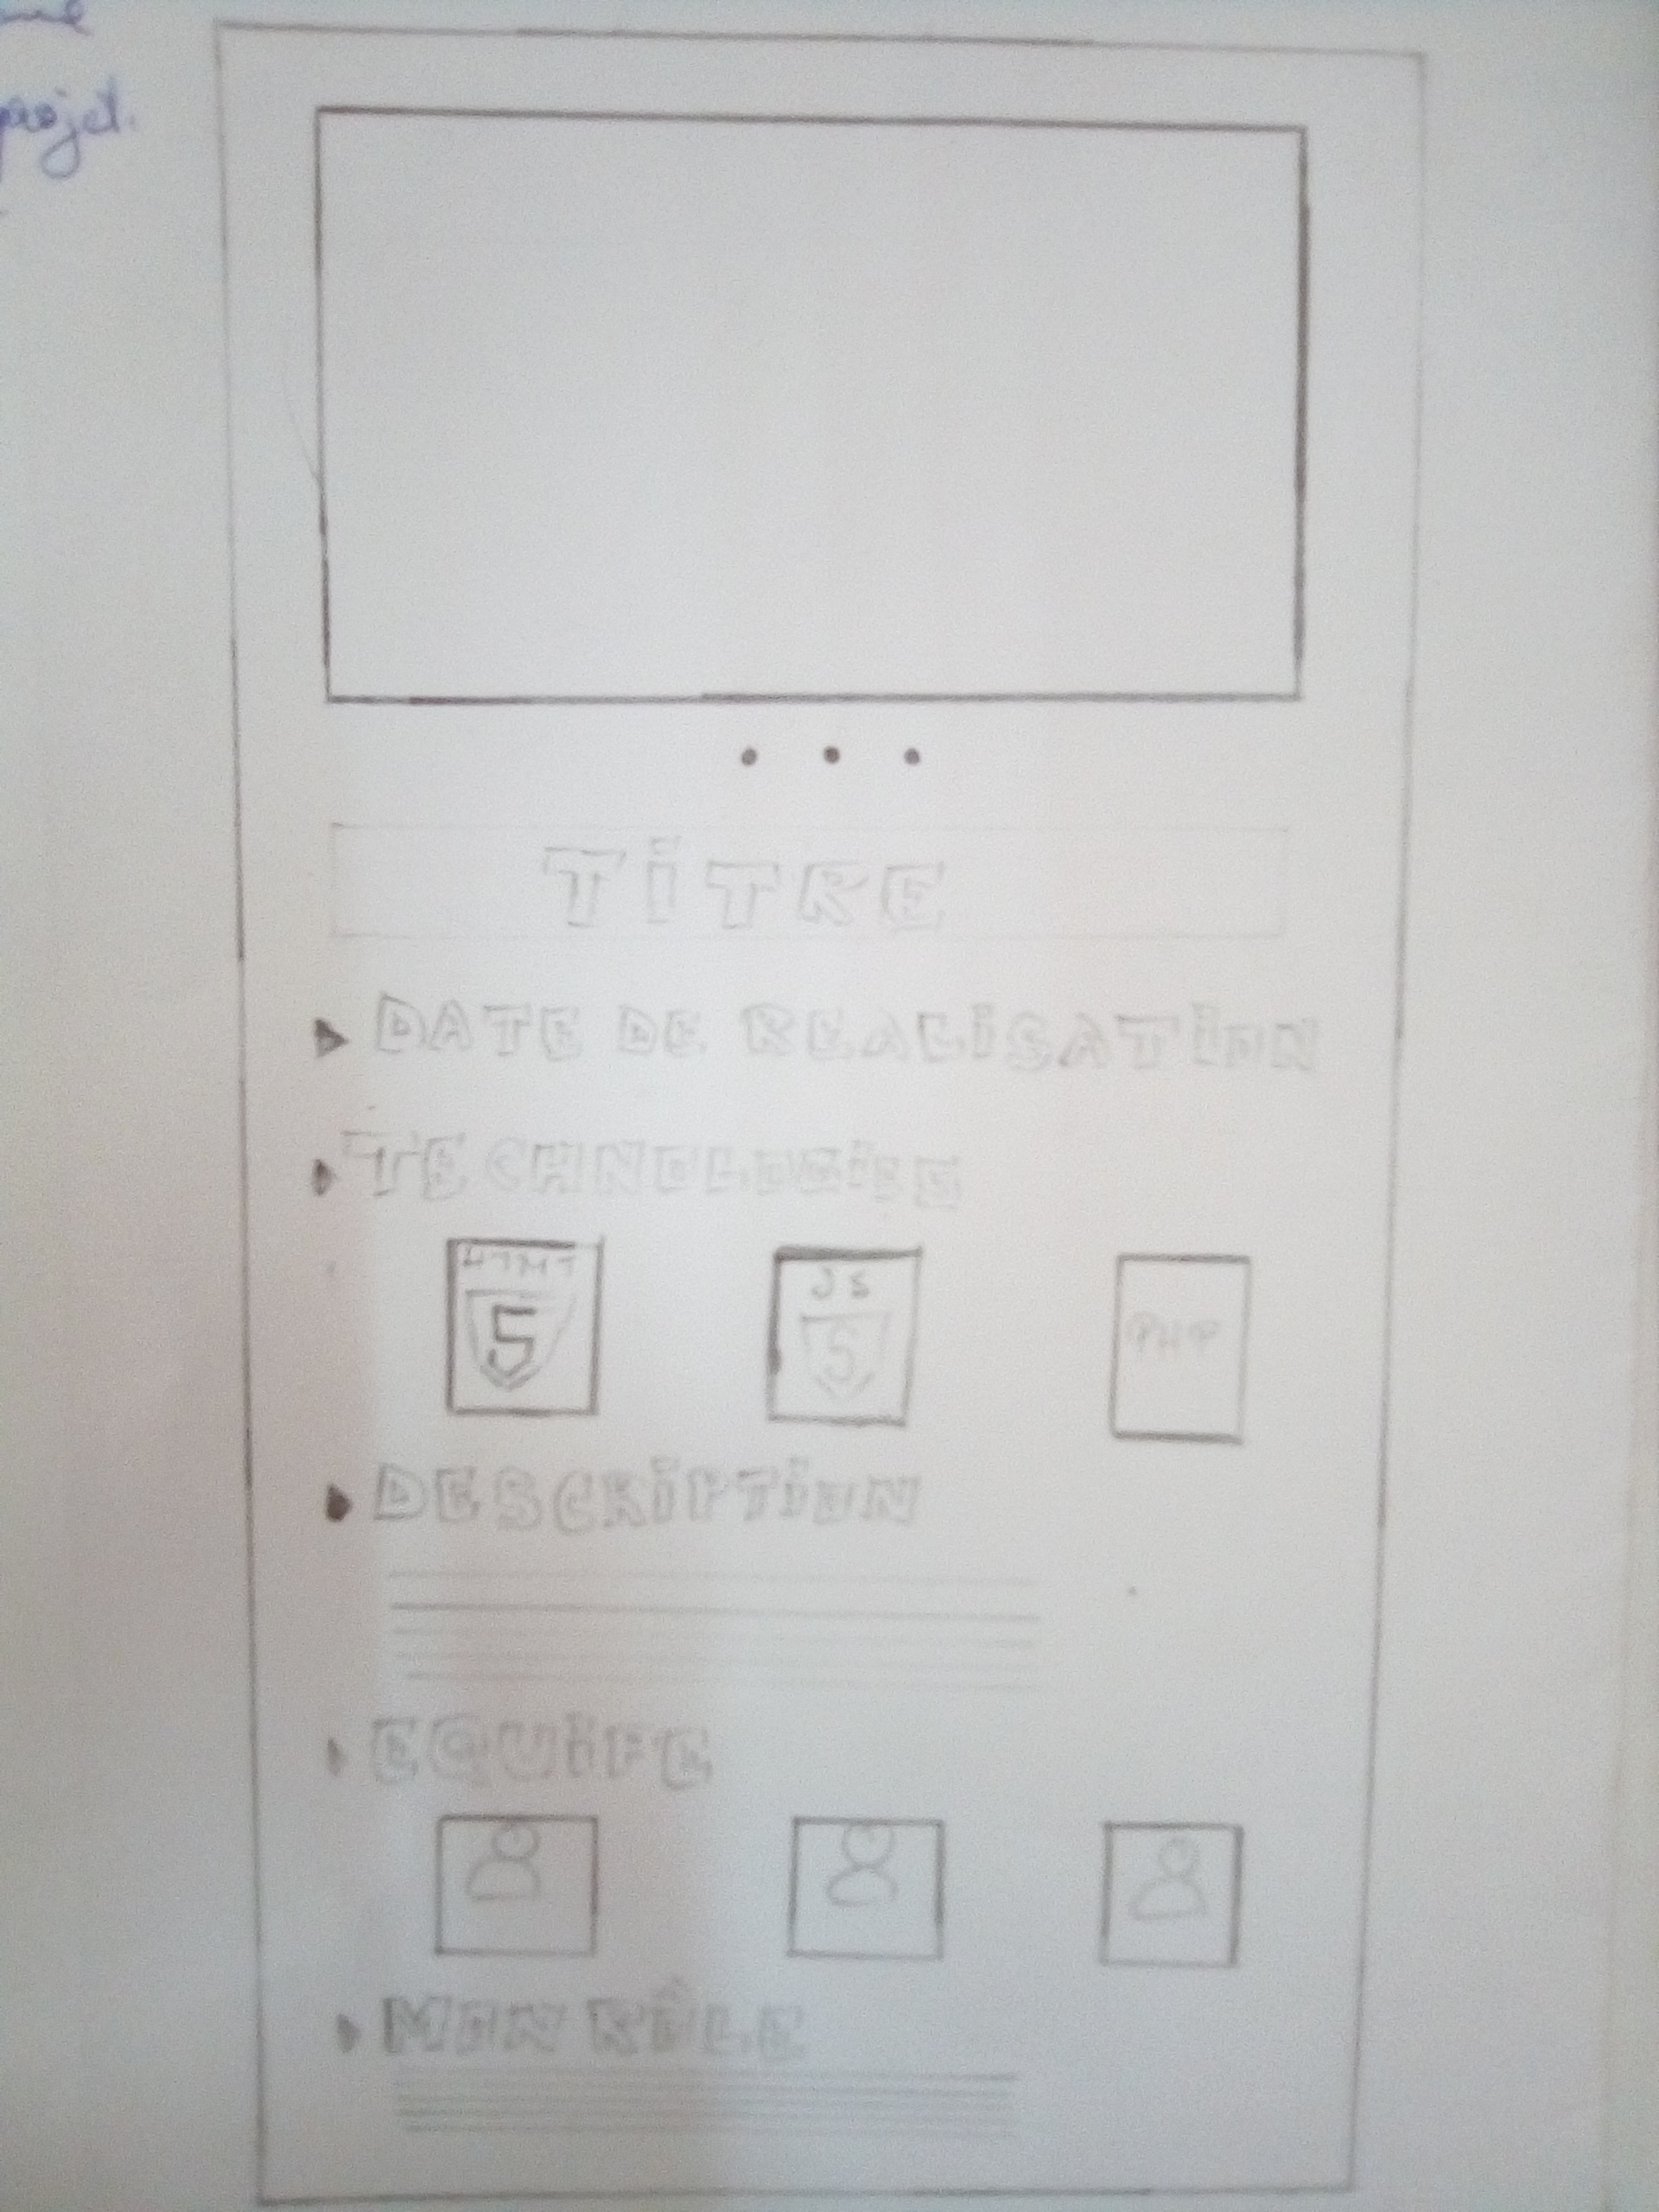 projet.
TiTRE
DATE DE REALiSATiON
TECHNOLOGiE
HTML JS PHP
5 5
DESCRiPTiON
EQUiPE
MON RÔLE